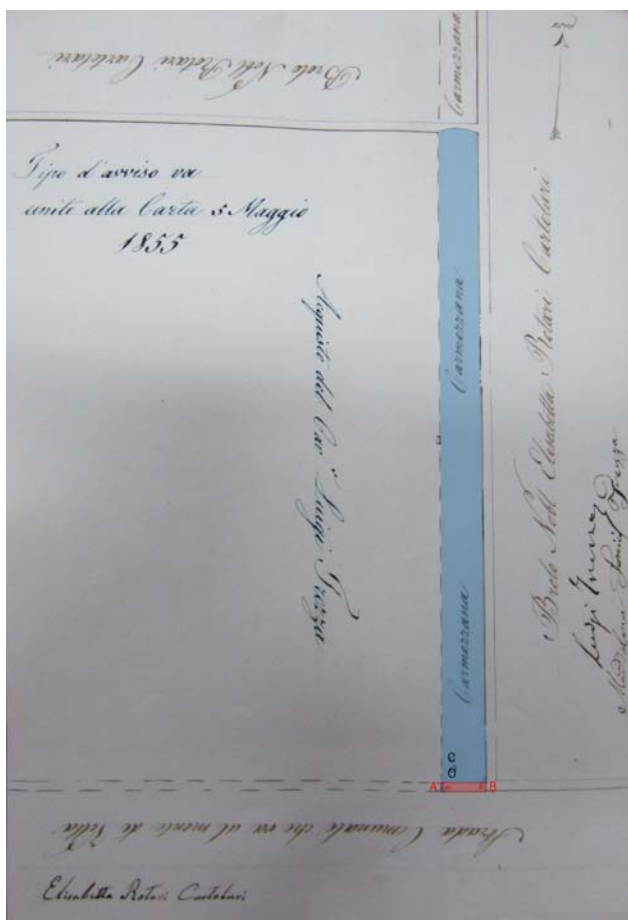 Brolo Nobl Rotari Cartolari
Carmerzana
Tipo d'avviso va
unito alla Carta 5 Maggio
1855
Acquisto del Cav Luigi Trezza
Carmerzana
Carmerzana
Brolo Nobl Elisabetta Rotari Cartolari
Luigi Trezza
A
B
Strada Comunale che va al monte di Villa
Elisabetta Rotari Cartolari